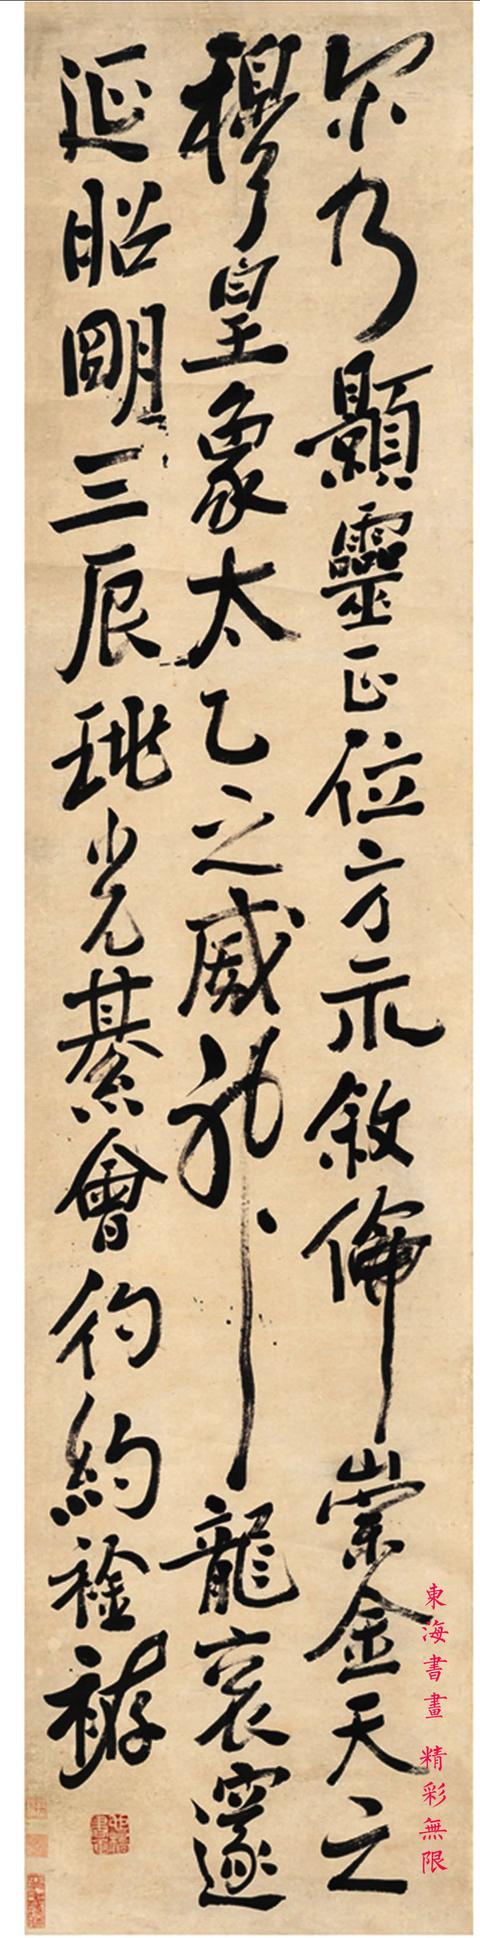 尔乃顯靈正位方示敘倫崇金天之
穆皇象太乙之威神龍袞邃
延昭明三辰珧光綦會彴約
東海書畫 精彩無限